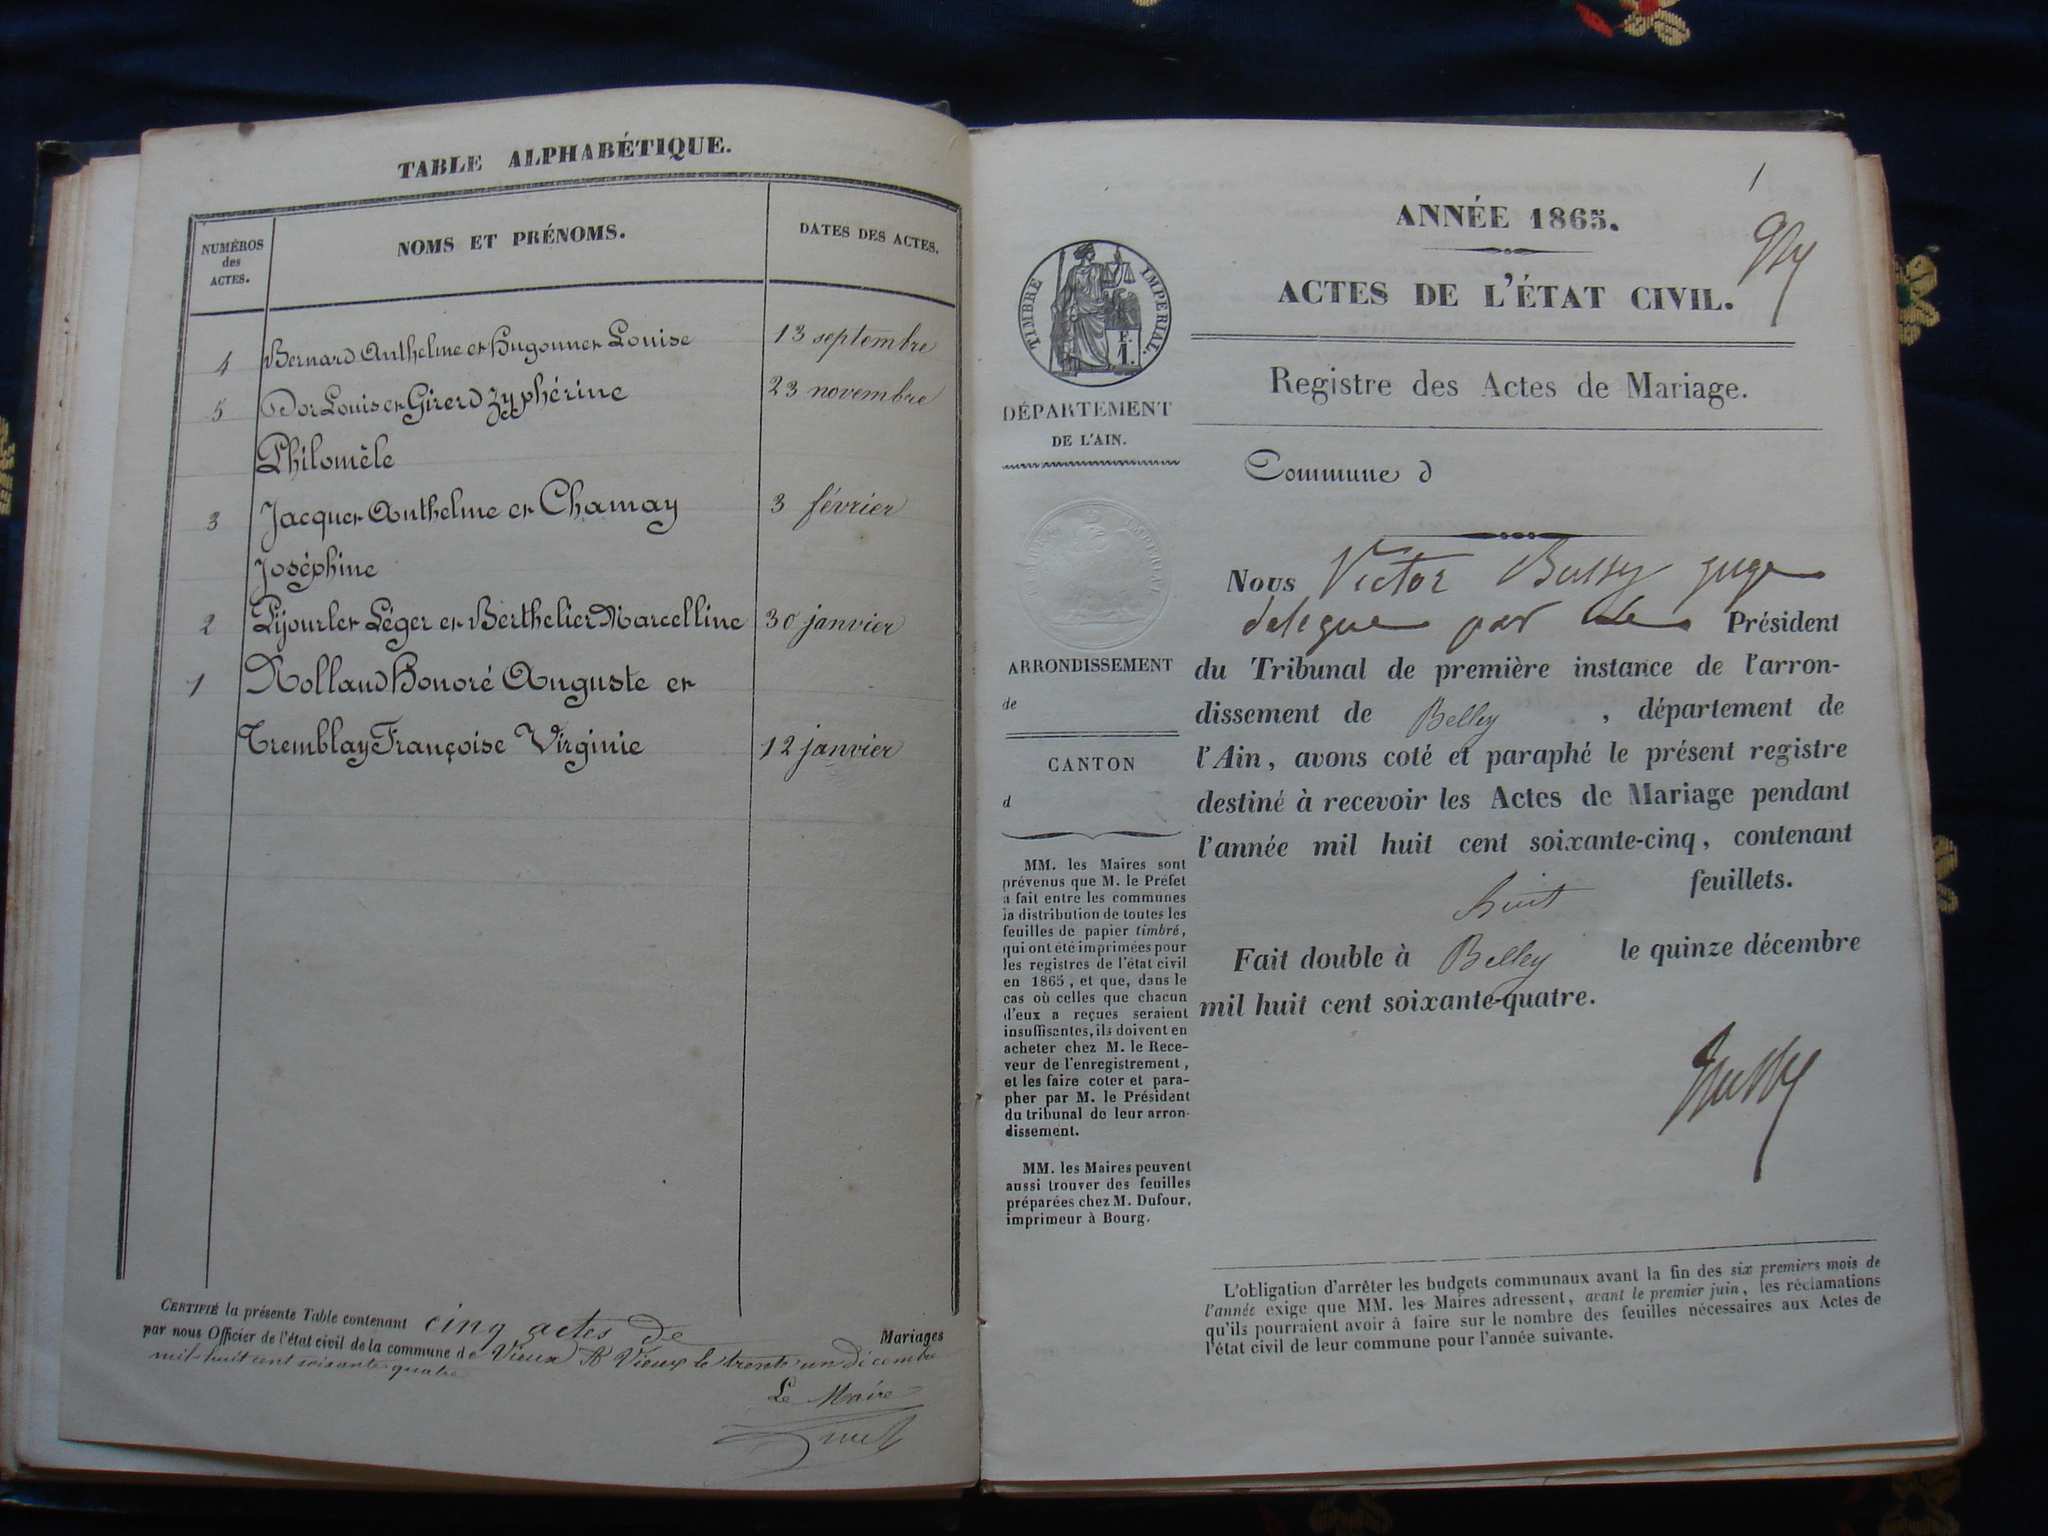 TABLE ALPHABÉTIQUE.
NUMÉROS
des
ACTES.
NOMS ET PRÉNOMS.
DATES DES ACTES.
4 Bernard Anthelme et Hugonnet Louise 13 septembre
5 Dor Louis et Girerd Zyphérine 23 novembre
Philomèle
3 Jacquet Anthelme et Chamay 3 février
Joséphine
2 Léger et Berthelier Marcelline 30 janvier
1 Rolland Honoré Auguste et
Tremblay Françoise Virginie 12 janvier
CERTIFIÉ la présente Table contenant cinq actes de Mariages
par nous Officier de l'état civil de la commune de Vieux A Vieux le trente un décembre
mil huit cent soixante quatre
Le Maire
1
ANNÉE 1865.
ACTES DE L'ÉTAT CIVIL.
Registre des Actes de Mariage.
TIMBRE IMPÉRIAL.
F.
1.
DÉPARTEMENT
DE L'AIN.
ARRONDISSEMENT
de
CANTON
d
MM. les Maires sont
prévenus que M. le Préfet
a fait entre les communes
la distribution de toutes les
feuilles de papier timbré,
qui ont été imprimées pour
les registres de l'état civil
en 1865, et que, dans le
cas où celles que chacun
d'eux a reçues seraient
insuffisantes, ils doivent en
acheter chez M. le Rece-
veur de l'enregistrement,
et les faire coter et para-
pher par M. le Président
du tribunal de leur arron-
dissement.
MM. les Maires peuvent
aussi trouver des feuilles
préparées chez M. Dufour,
imprimeur à Bourg.
Commune d
Nous Victor Bussy juge
delegue par le Président
du Tribunal de première instance de l'arron-
dissement de Belley, département de
l'Ain, avons coté et paraphé le présent registre
destiné à recevoir les Actes de Mariage pendant
l'année mil huit cent soixante-cinq, contenant
huit feuillets.
Fait double à Belley le quinze décembre
mil huit cent soixante-quatre.
Bussy
L'obligation d'arrêter les budgets communaux avant la fin des six premiers mois de
l'année exige que MM. les Maires adressent, avant le premier juin, les réclamations
qu'ils pourraient avoir à faire sur le nombre des feuilles nécessaires aux Actes de
l'état civil de leur commune pour l'année suivante.